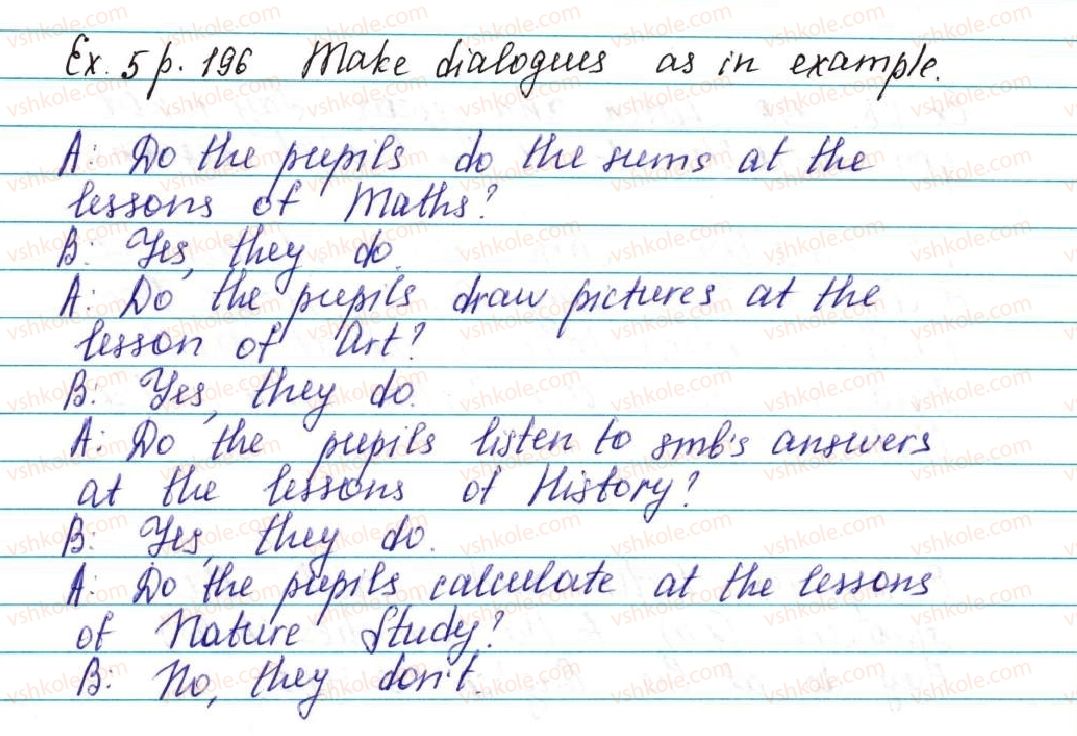 Ex. 5 p. 196 Make dialogues as in example.
A: Do the pupils do the sums at the
lessons of Maths?
B: Yes, they do.
A: Do the pupils draw pictures at the
lesson of Art?
B: Yes, they do.
A: Do the pupils listen to smb's answers
at the lessons of History?
B: Yes, they do.
A: Do the pupils calculate at the lessons
of Nature Study?
B: No, they don't.